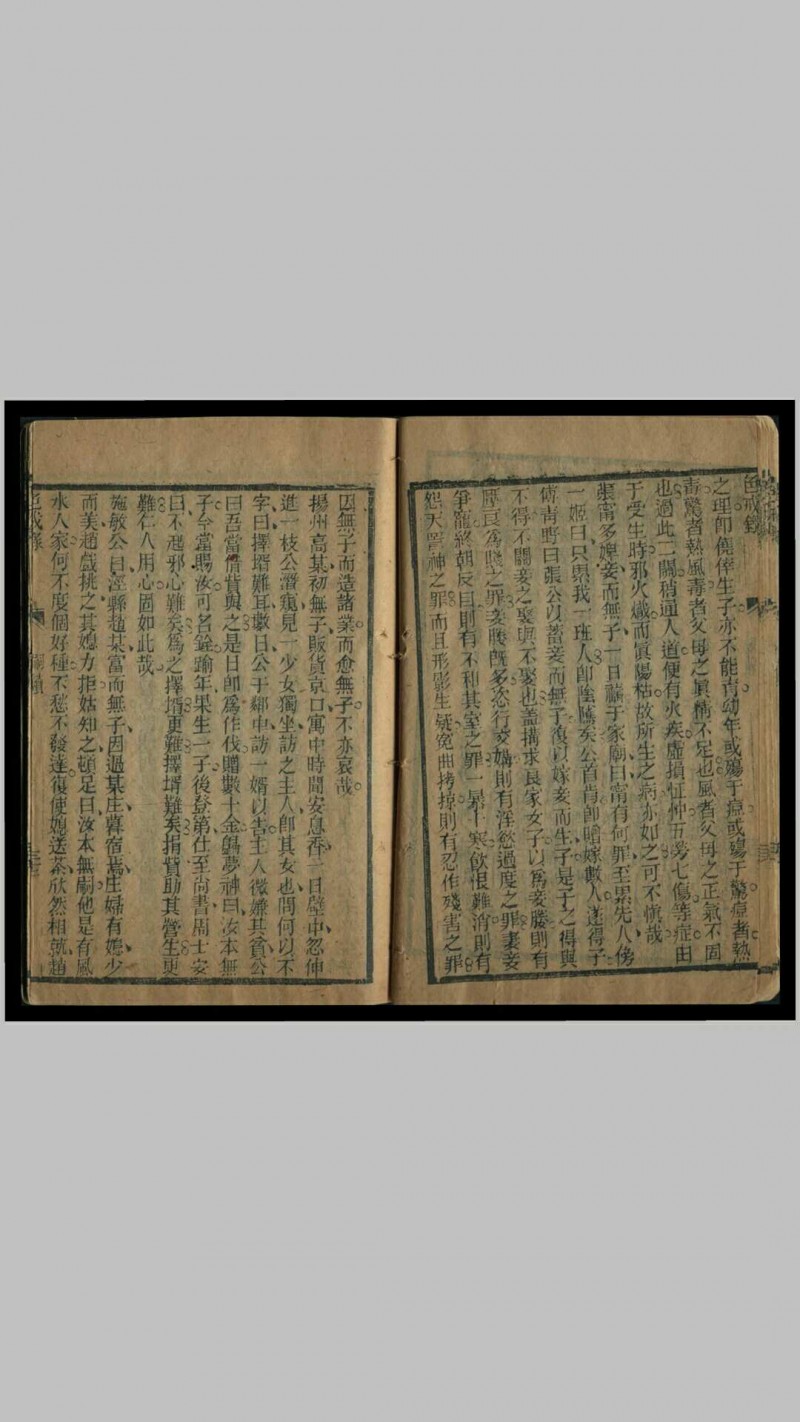 色戒錄
之理卽僥倖生子亦不能育幼年或殤于痘或殤于驚痘者熱
毒驚者熱風毒者父母之眞精不足也風者父母之正氣不固
也過此二關稍通人道便有火疾虛損怔忡五勞七傷等症由
于受生時邪火熾而眞陽枯故所生之病亦如之可不愼哉
張甯多婢妾而無子一日禱于家廟曰甯有何罪至累先人傍
一姬曰只累我一班人卽陰隲矣公首肯卽贈嫁數人遂得子
傅青野曰張公以蓄妾而無子復以嫁妾而生子是子之得與
不得不關妾之娶與不娶也蓋搆求良家女子以爲妾媵則有
壓良爲賤之罪妾媵旣多恣行交媾則有淫慾過度之罪妻妾
爭寵終朝反目則有不和其室之罪一暴十寒飲恨難消則有
怨天詈神之罪而且形影生疑冤曲拷掠則有忍作殘害之罪
因無子而造諸業而愈無子不亦哀哉
揚州高某初無子販貨京口寓中時聞安息香一日壁中忽伸
進一枝公濳窺見一少女獨坐訪之主人卽其女也問何以不
字曰擇壻難耳數日公于鄰中訪一婿以告主人微嫌其貧公
曰吾當借貲與之是日卽爲作伐贈數十金歸夢神曰汝本無
子今當賜汝可名銓踰年果生一子後登第仕至尚書周士安
曰不起邪心難矣爲之擇壻更難擇壻難矣捐貲助其營生更
難仁人用心固如此哉
施敏公曰涇縣趙某富而無子因過某庄暮宿焉庄婦有媳少
而美趙戲挑之其媳力拒姑知之頓足曰汝本無嗣他是有風
水人家何不度個好種不愁不發達復使媳送茶欣然相就趙